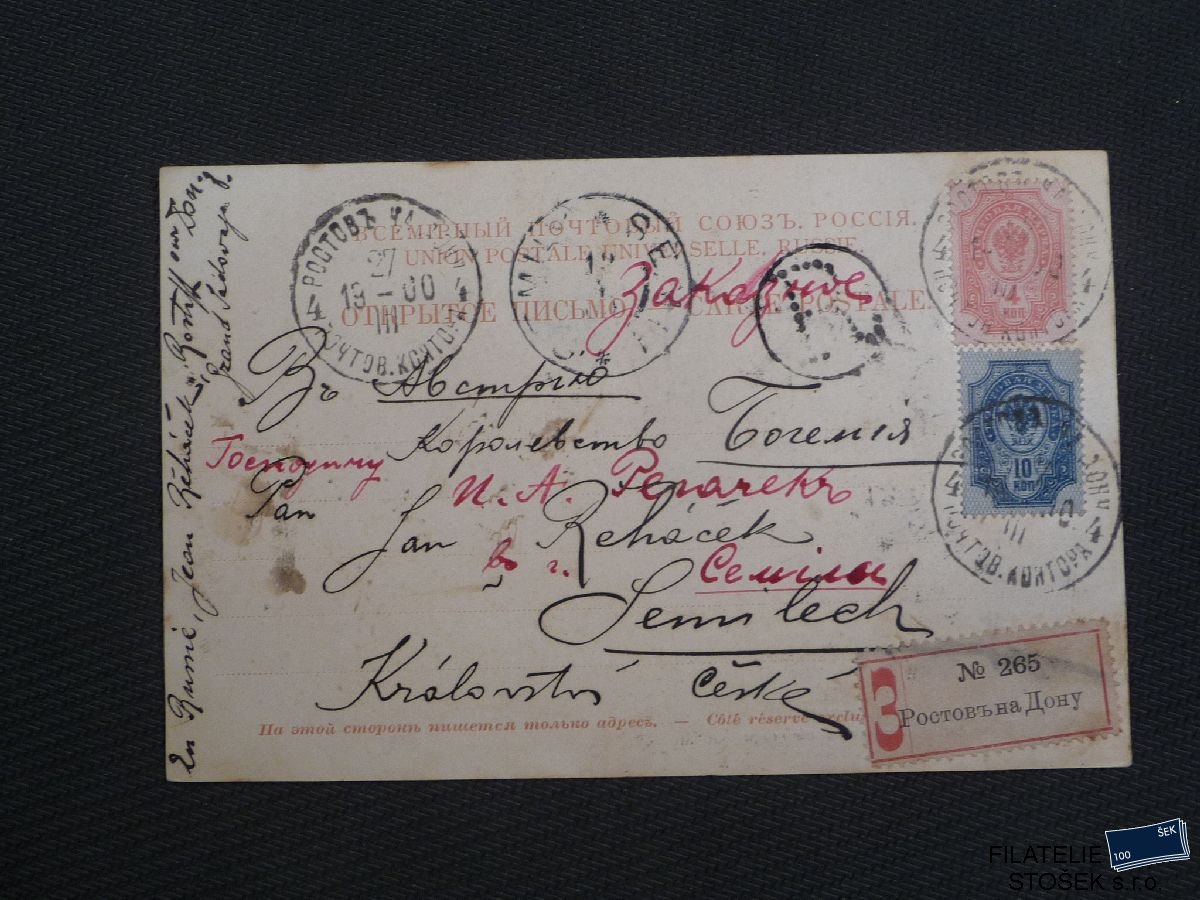 ВСЕМІРНЫЙ ПОЧТОВЫЙ СОЮЗЪ. РОССІЯ.
UNION POSTALE UNIVERSELLE. RUSSIE.
ОТКРЫТОЕ ПИСЬМО. — CARTE POSTALE.
Заказное
РОСТОВЪ НА ДОНУ
27
19 – 00
III
4 4
ПОЧТОВ. КОНТОРА
4
КОП
10
КОП
ПОЧТОВ. КОНТОРА 4
Въ Австрію
Королевство Богемія
Господину И. А. Регачекъ
Pan Jan Řeháček
в г. Семилы
Semilech
Království České
На этой сторонѣ пишется только адресъ. — Côté réservé exclu
З
№ 265
Ростовъ на Дону
En Russie, Jean Řeháček, Rostoff sur Don.
FILATELIE
STOŠEK s.r.o.
100 ŠEK